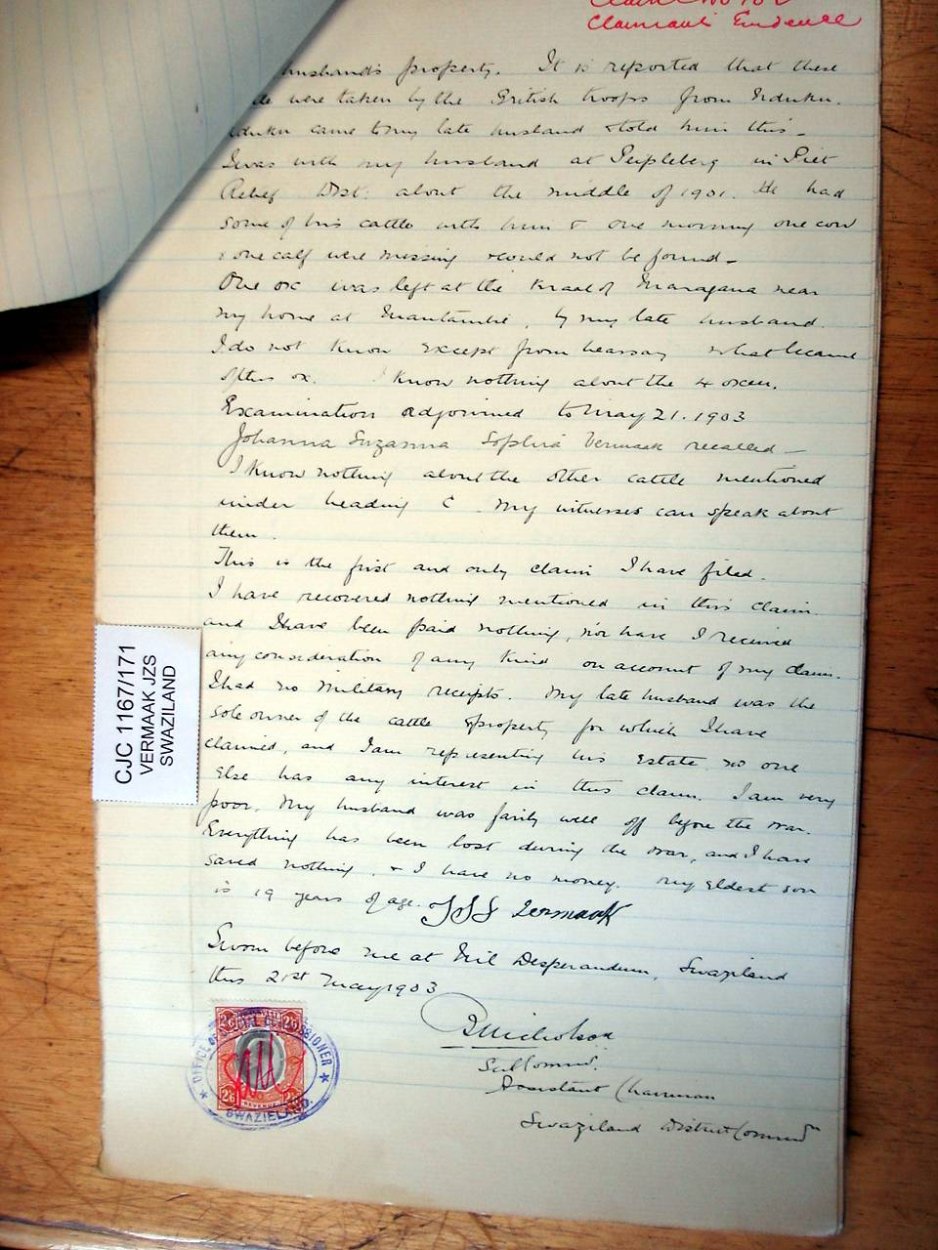 Claimants Evidence
husband's property. It is reported that these
were taken by the British troops from Nduku.
Nduku came to my late husband & told him this -
I was with my husband at in Piet
Retief Dist. about the middle of 1901. He had
some of his cattle with him & one morning one cow
& one calf were missing & could not be found -
One ox was left at the Kraal of near
my home at , by my late husband.
I do not know except from hearsay what became
of this ox. I know nothing about the 4 oxen.
Examination adjourned to May 21. 1903
Johanna Suzanna Sophia Vermaak recalled -
I know nothing about the other cattle mentioned
under heading C. My witnesses can speak about
them.
This is the first and only claim I have filed.
I have recovered nothing mentioned in this claim
and I have been paid nothing, nor have I received
any consideration of any kind on account of my claim.
I had no Military receipts. My late husband was the
sole owner of the cattle & property for which I have
claimed, and I am representing his Estate. no one
else has any interest in this claim. I am very
poor. My husband was fairly well off before the war.
Everything has been lost during the war, and I have
saved nothing, & I have no money. My eldest son
is 19 years of age. JSS Vermaak
Sworn before me at Nil Desperandum, Swaziland
this 21st May 1903
Nicholson
Assistant Chairman
Swaziland District Commn
CJC 1167/171
VERMAAK JZS
SWAZILAND
2/6 2/6
2/6 2/6
REVENUE
OFFICE OF SPECIAL COMMISSIONER
SWAZIELAND.